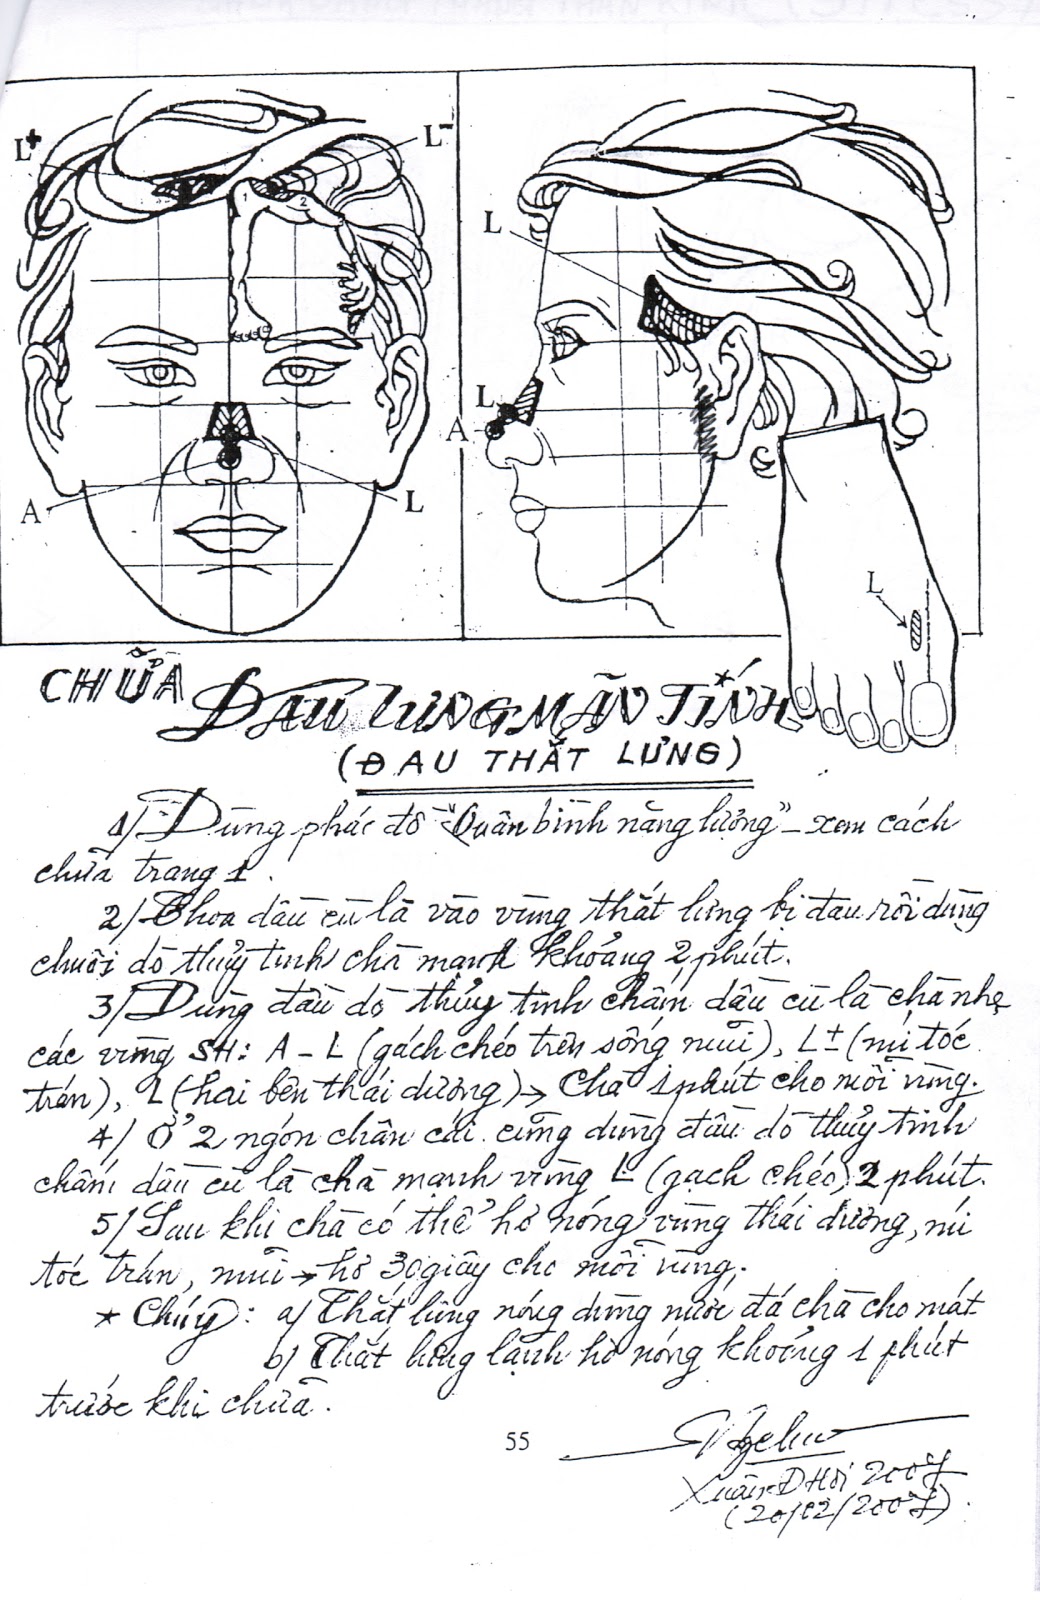 L+
L-
A
L
L
L
A
L
1
2
CHỮA
ĐAU LƯNG MÃN TÍNH
(ĐAU THẮT LƯNG)
1/ Dùng phác đồ "Quân bình năng lượng" – xem cách
chữa trang 1.
2/ Thoa dầu cù là vào vùng thắt lưng bị đau rồi dùng
chuôi dò thủy tinh chà mạnh khoảng 2 phút.
3/ Dùng đầu dò thủy tinh chấm dầu cù là chà nhẹ
các vùng SH: A – L (gách chéo trên sống mũi), L± (mí tóc
trán), L (hai bên thái dương) → Chà 1 phút cho mỗi vùng.
4/ Ở 2 ngón chân cái cũng dùng đầu dò thủy tinh
chấm dầu cù là chà mạnh vùng L (gạch chéo) 2 phút.
5/ Sau khi chà có thể hơ nóng vùng thái dương, mí
tóc trán, mũi → hơ 30 giây cho mỗi vùng.
* Chú ý: a/ Thắt lưng nóng dùng nước đá chà cho mát
b/ Thắt lưng lạnh hơ nóng khoảng 1 phút
trước khi chữa.
55
Xuân Đ Hợi 2007
(20/02/2007).